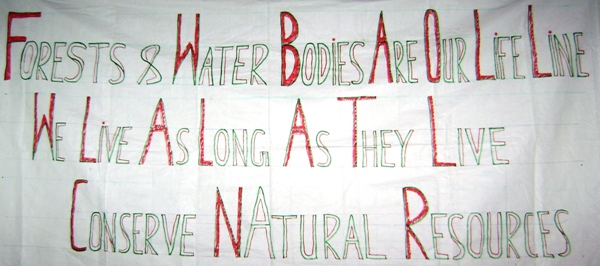 Forests & Water Bodies Are Our Life Line
We Live As Long As They Live
Conserve Natural Resources